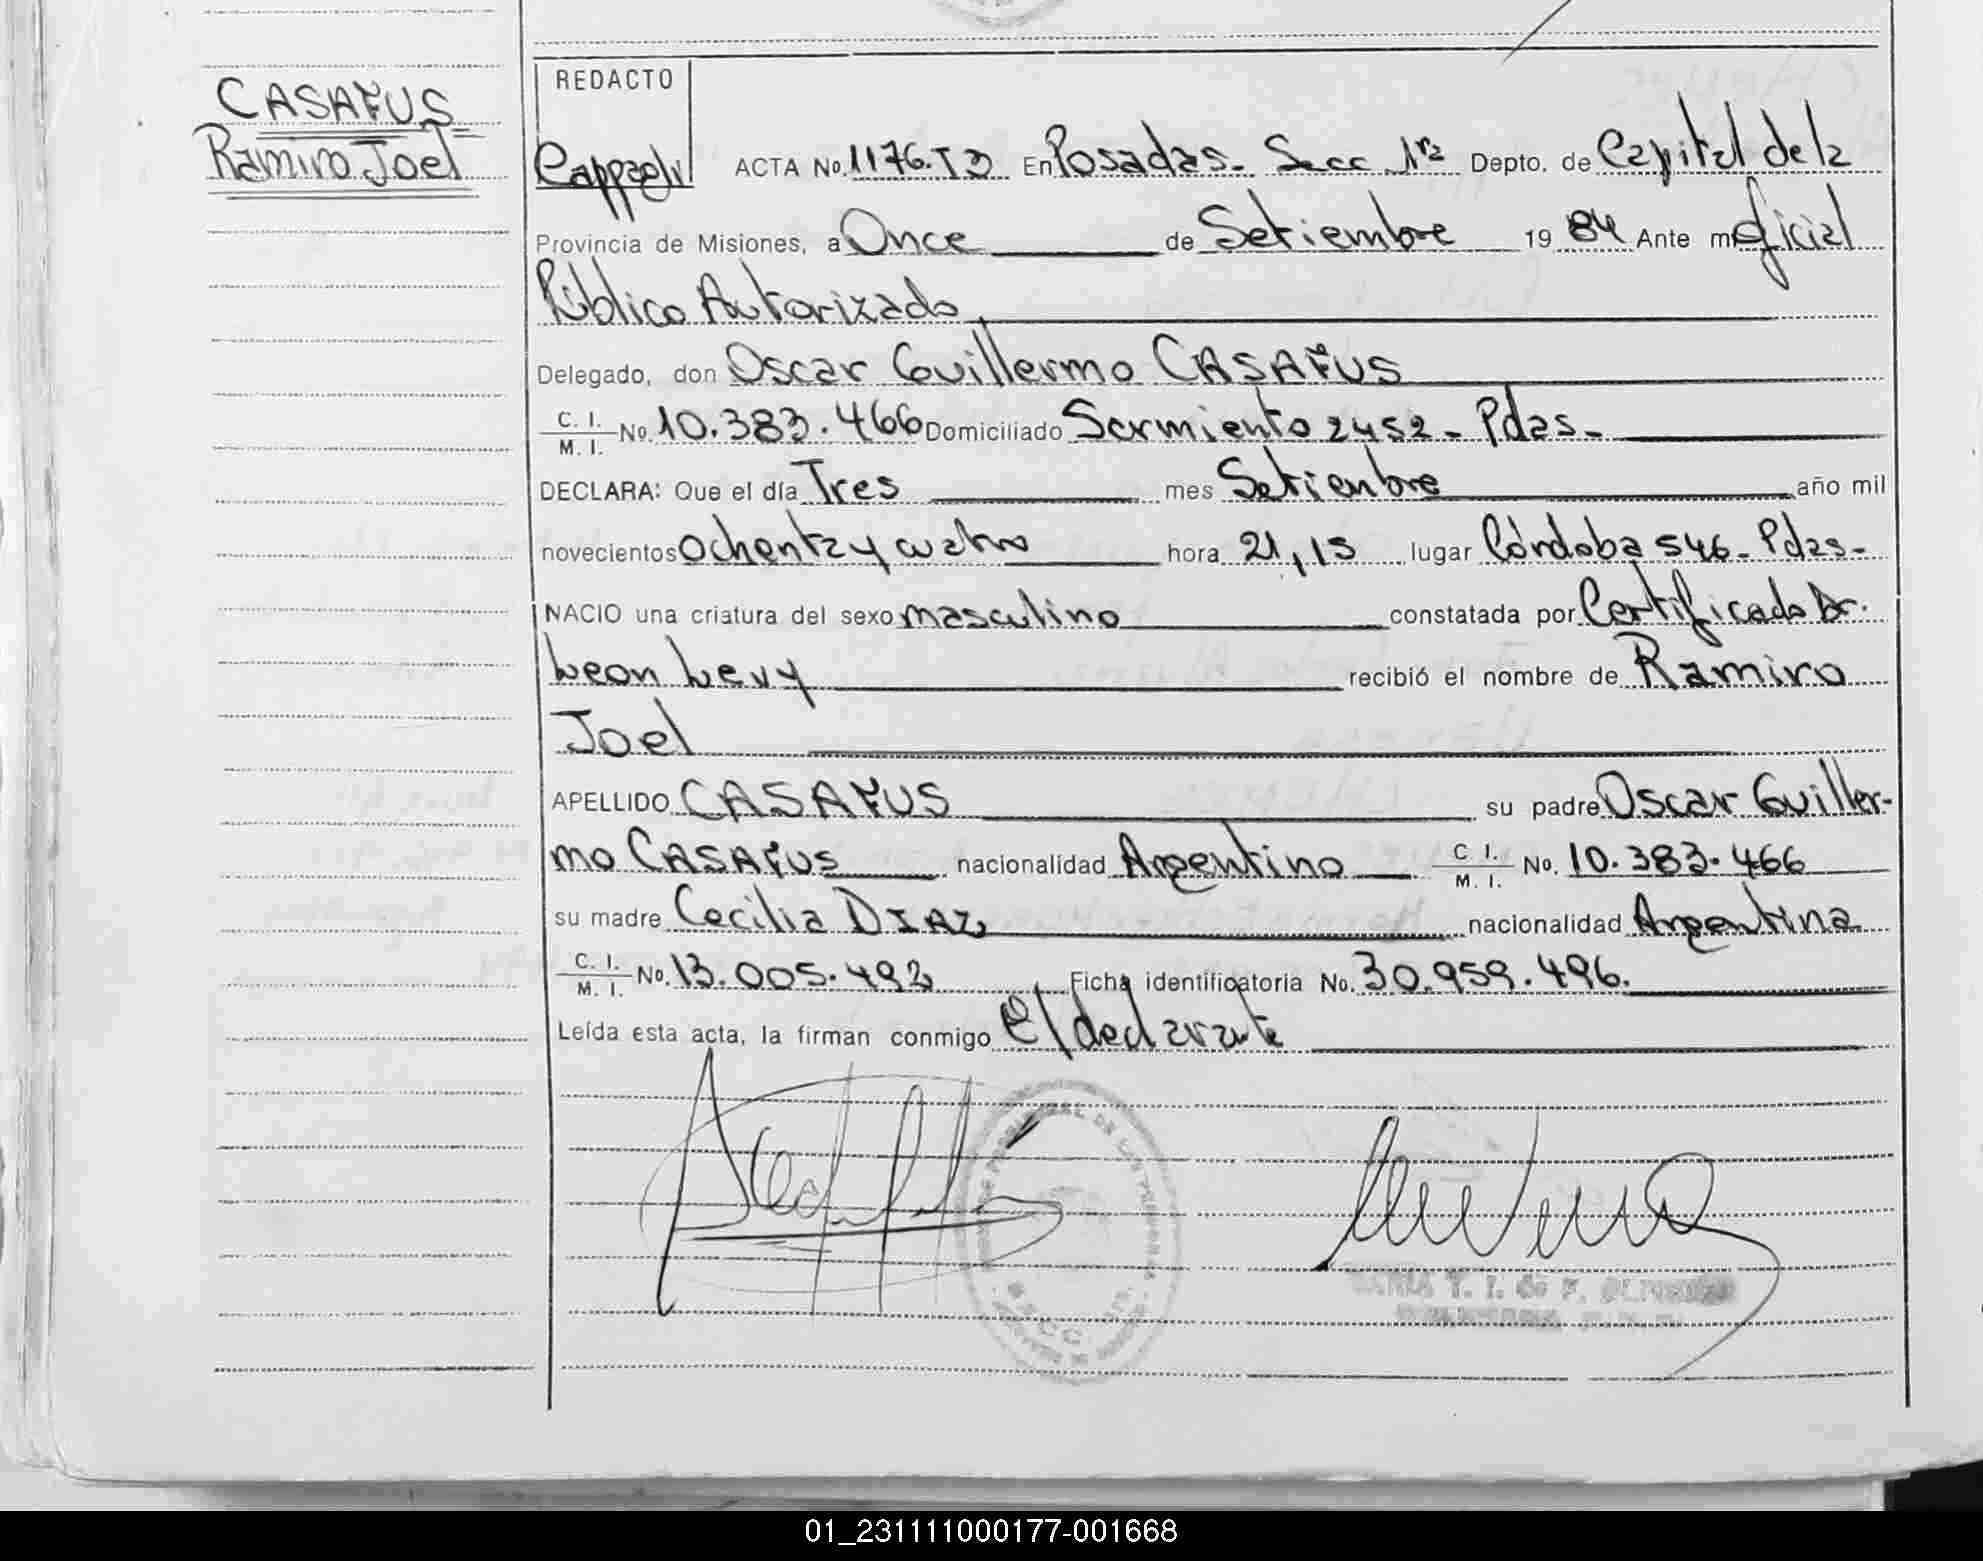 CASAFUS
Ramiro Joel
REDACTO
ACTA No. 1176. T3 En Posadas - Secc 1ra Depto. de Capital de la
Provincia de Misiones, a Once de Setiembre 19 84 Ante mi Oficial
Público Autorizado
Delegado, don Oscar Guillermo CASAFUS
C. I. M. I. No. 10.383.466 Domiciliado Sarmiento 2452 - Pdas -
DECLARA: Que el día Tres mes Setiembre año mil
novecientos ochenta y cuatro hora 21,15 lugar Córdoba 546 - Pdas -
NACIO una criatura del sexo masculino constatada por Certificado Dr.
Leon Levy recibió el nombre de Ramiro
Joel
APELLIDO CASAFUS su padre Oscar Guiller-
mo CASAFUS nacionalidad Argentino C I. M. I. No. 10.383.466
su madre Cecilia DIAZ nacionalidad Argentina
C. I. M. I. No. 13.005.492 Ficha identificatoria No. 30.959.496.
Leída esta acta, la firman conmigo el declarante
01_231111000177-001668